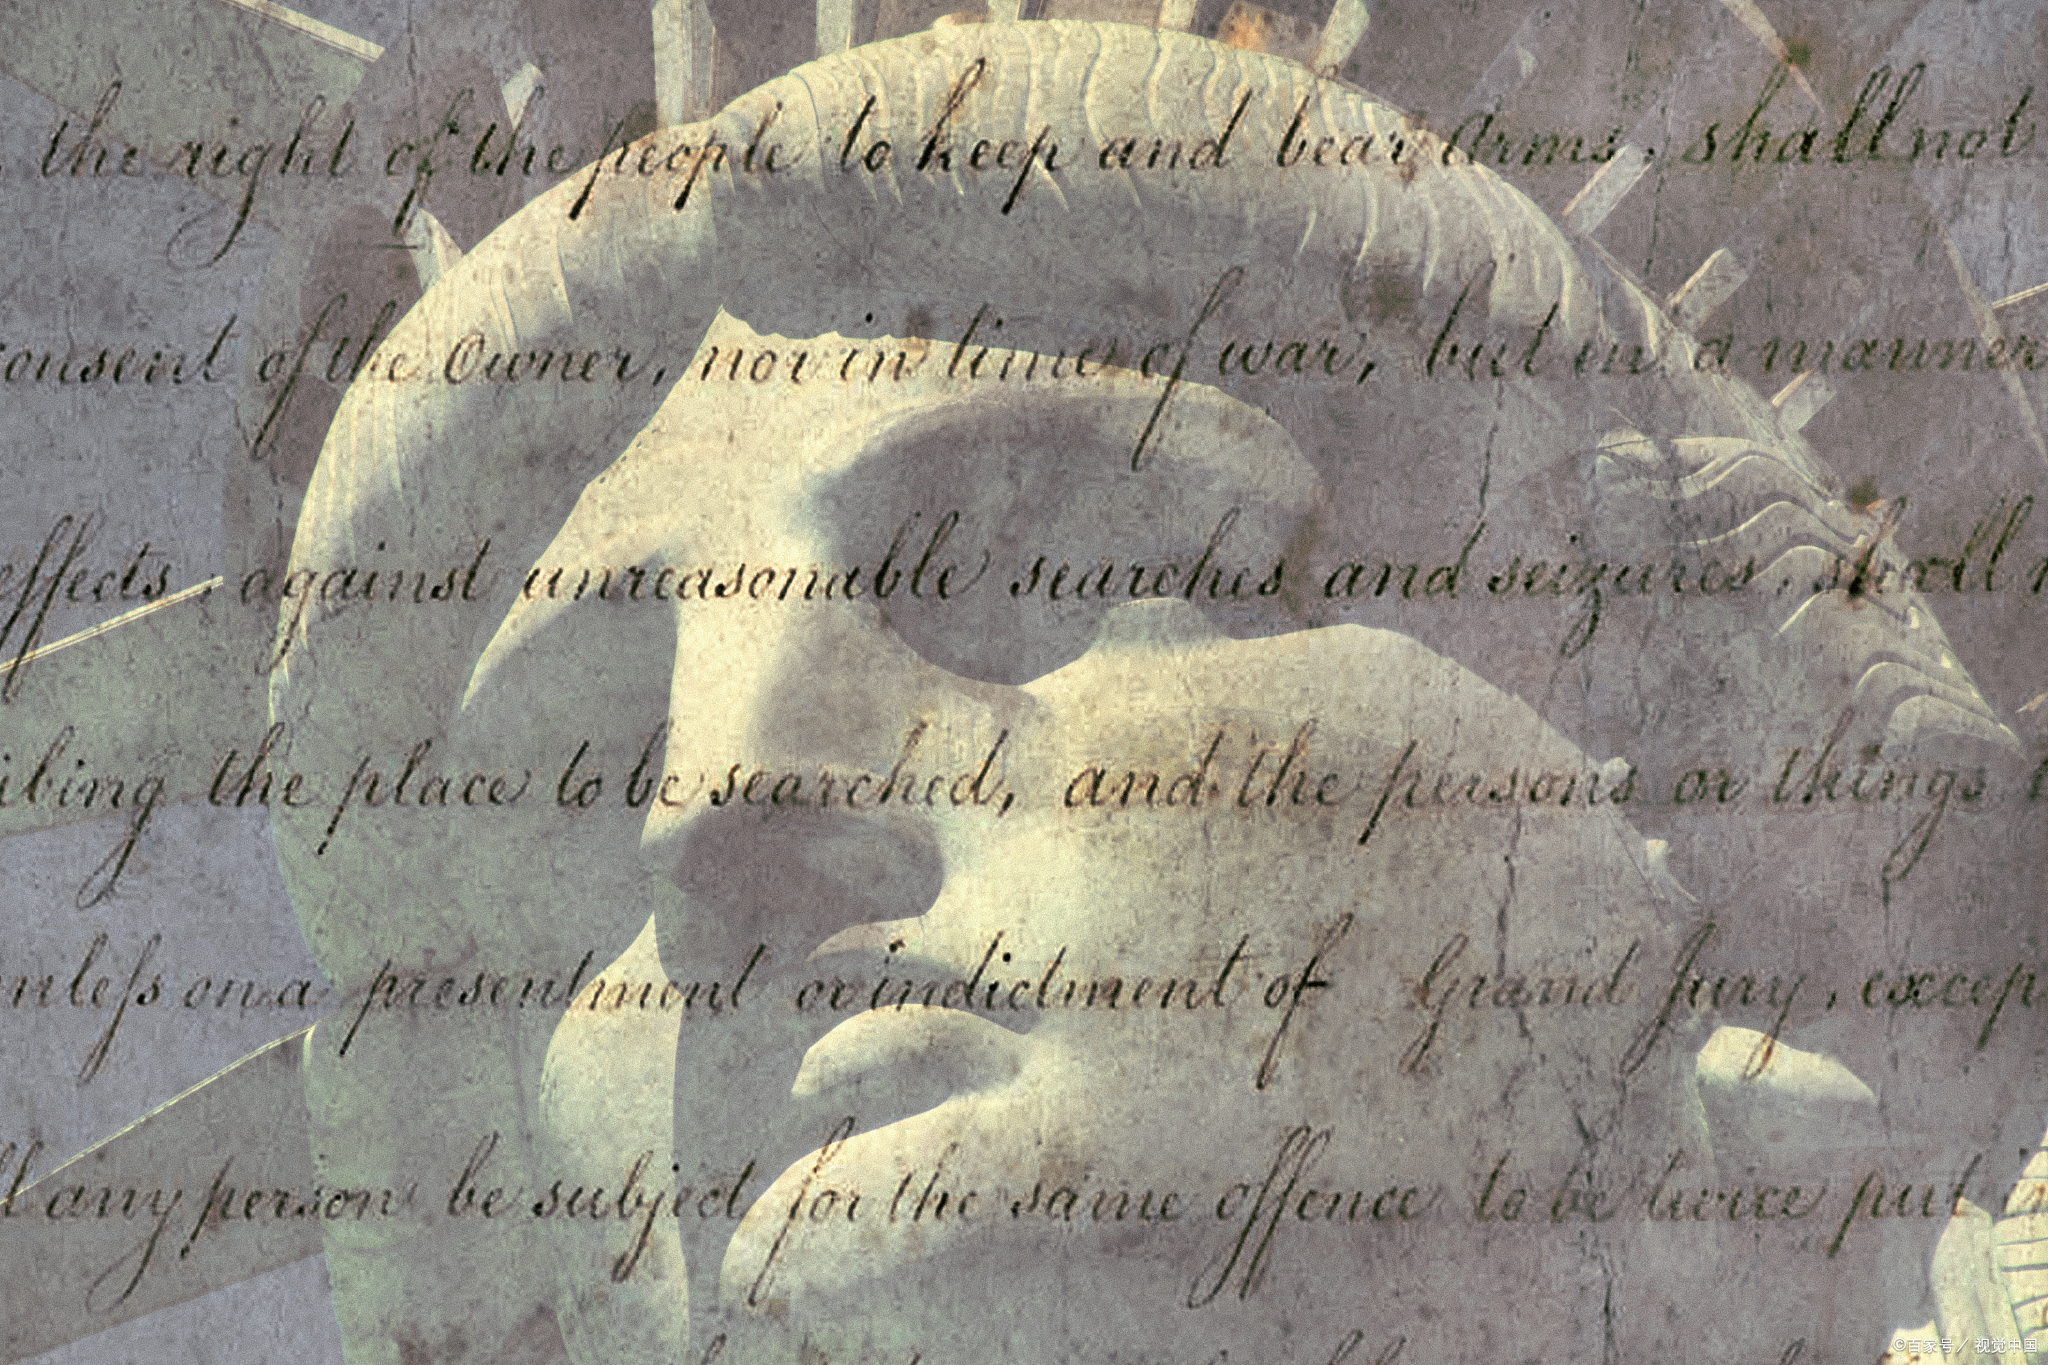 the right of the people to keep and bear Arms, shall not
consent of the Owner, nor in time of war, but in a manner
effects, against unreasonable searches and seizures, shall
the place to be searched, and the persons or things
on a presentment or indictment of Grand Jury, excep
any person be subject for the same offence to be twice put
©百家号／视觉中国